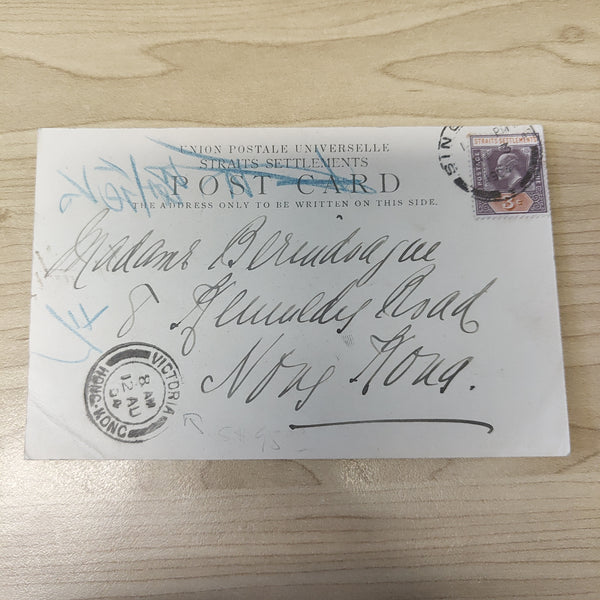 UNION POSTALE UNIVERSELLE
STRAITS SETTLEMENTS
POST CARD
THE ADDRESS ONLY TO BE WRITTEN ON THIS SIDE.
STRAITS SETTLEMENTS
POSTAGE
SING
PM
Madame Berindoague
8 Kennedy Road
Hong Kong.
VICTORIA
8 AM
12 AU
04
HONG-KONG